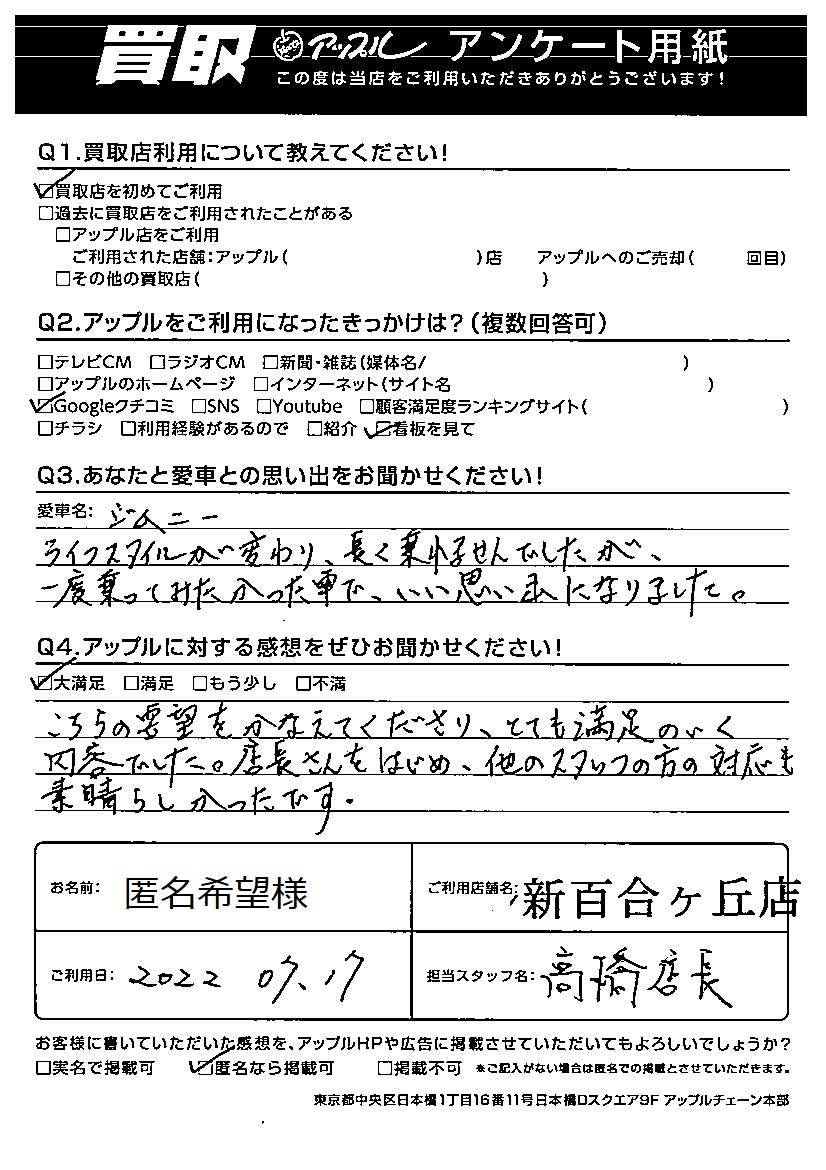 買取 アップル アンケート用紙
この度は当店をご利用いただきありがとうございます!
Q1.買取店利用について教えてください!
☑買取店を初めてご利用
□過去に買取店をご利用されたことがある
□アップル店をご利用
ご利用された店舗:アップル( )店 アップルへのご売却( 回目)
□その他の買取店( )
Q2.アップルをご利用になったきっかけは?(複数回答可)
□テレビCM □ラジオCM □新聞・雑誌(媒体名/ )
□アップルのホームページ □インターネット(サイト名 )
☑Googleクチコミ □SNS □Youtube □顧客満足度ランキングサイト( )
□チラシ □利用経験があるので □紹介 ☑看板を見て
Q3.あなたと愛車との思い出をお聞かせください!
愛車名: ジムニー
ライフスタイルが変わり、長く乗れませんでしたが、
一度乗ってみたかった車で、いい思い出になりました。
Q4.アップルに対する感想をぜひお聞かせください!
☑大満足 □満足 □もう少し □不満
こちらの要望をかなえてくださり、とても満足のいく
内容でした。店長さんをはじめ、他のスタッフの方の対応も
素晴らしかったです。
お名前: 匿名希望様 ご利用店舗名: 新百合ヶ丘店
ご利用日: 2022 07、17 担当スタッフ名: 高橋店長
お客様に書いていただいた感想を、アップルHPや広告に掲載させていただいてもよろしいでしょうか?
□実名で掲載可 ☑匿名なら掲載可 □掲載不可 *ご記入がない場合は匿名での掲載とさせていただきます。
東京都中央区日本橋1丁目16番11号日本橋Dスクエア9F アップルチェーン本部